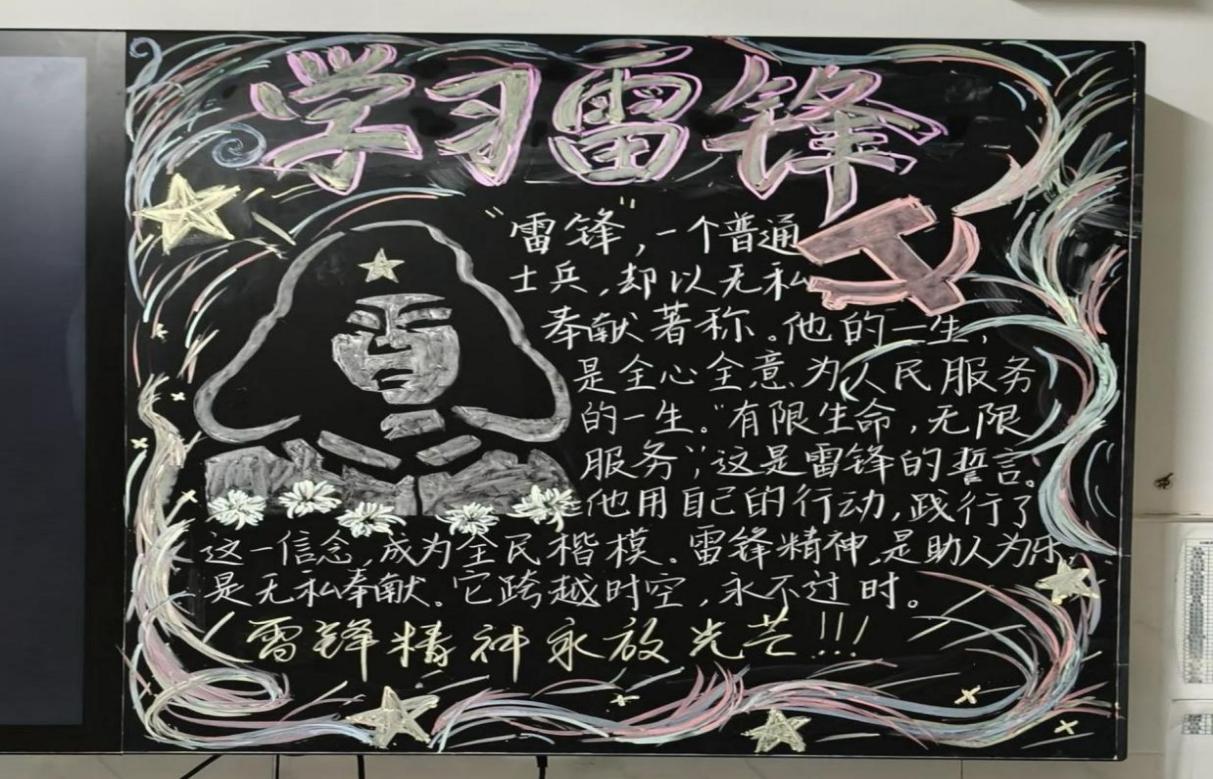 学习雷锋
“雷锋”,一个普通
士兵,却以无私
奉献著称。他的一生,
是全心全意为人民服务
的一生。“有限生命,无限
服务”,这是雷锋的誓言。
他用自己的行动,践行了
这一信念,成为全民楷模。雷锋精神,是助人为乐,
是无私奉献。它跨越时空,永不过时。
雷锋精神永放光芒!!!